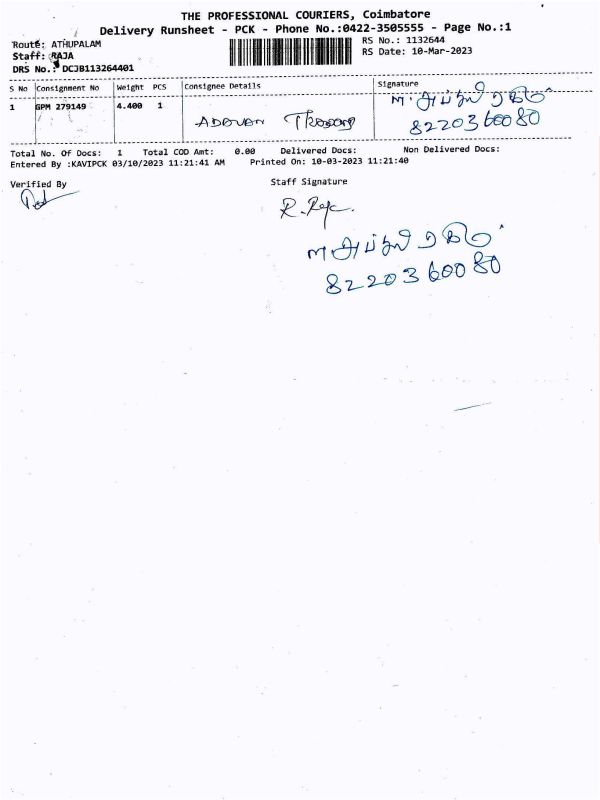 THE PROFESSIONAL COURIERS, Coimbatore
Delivery Runsheet - PCK - Phone No.:0422-3505555 - Page No.:1
Route: ATHUPALAM
Staff: RAJA
DRS No.: DCJB113264401
RS No.: 1132644
RS Date: 10-Mar-2023
S No Consignment No Weight PCS Consignee Details Signature
1 GPM 279149 4.400 1
8220360080
Total No. Of Docs: 1 Total COD Amt: 0.00 Delivered Docs: Non Delivered Docs:
Entered By :KAVIPCK 03/10/2023 11:21:41 AM Printed On: 10-03-2023 11:21:40
Verified By
Staff Signature
8220360080